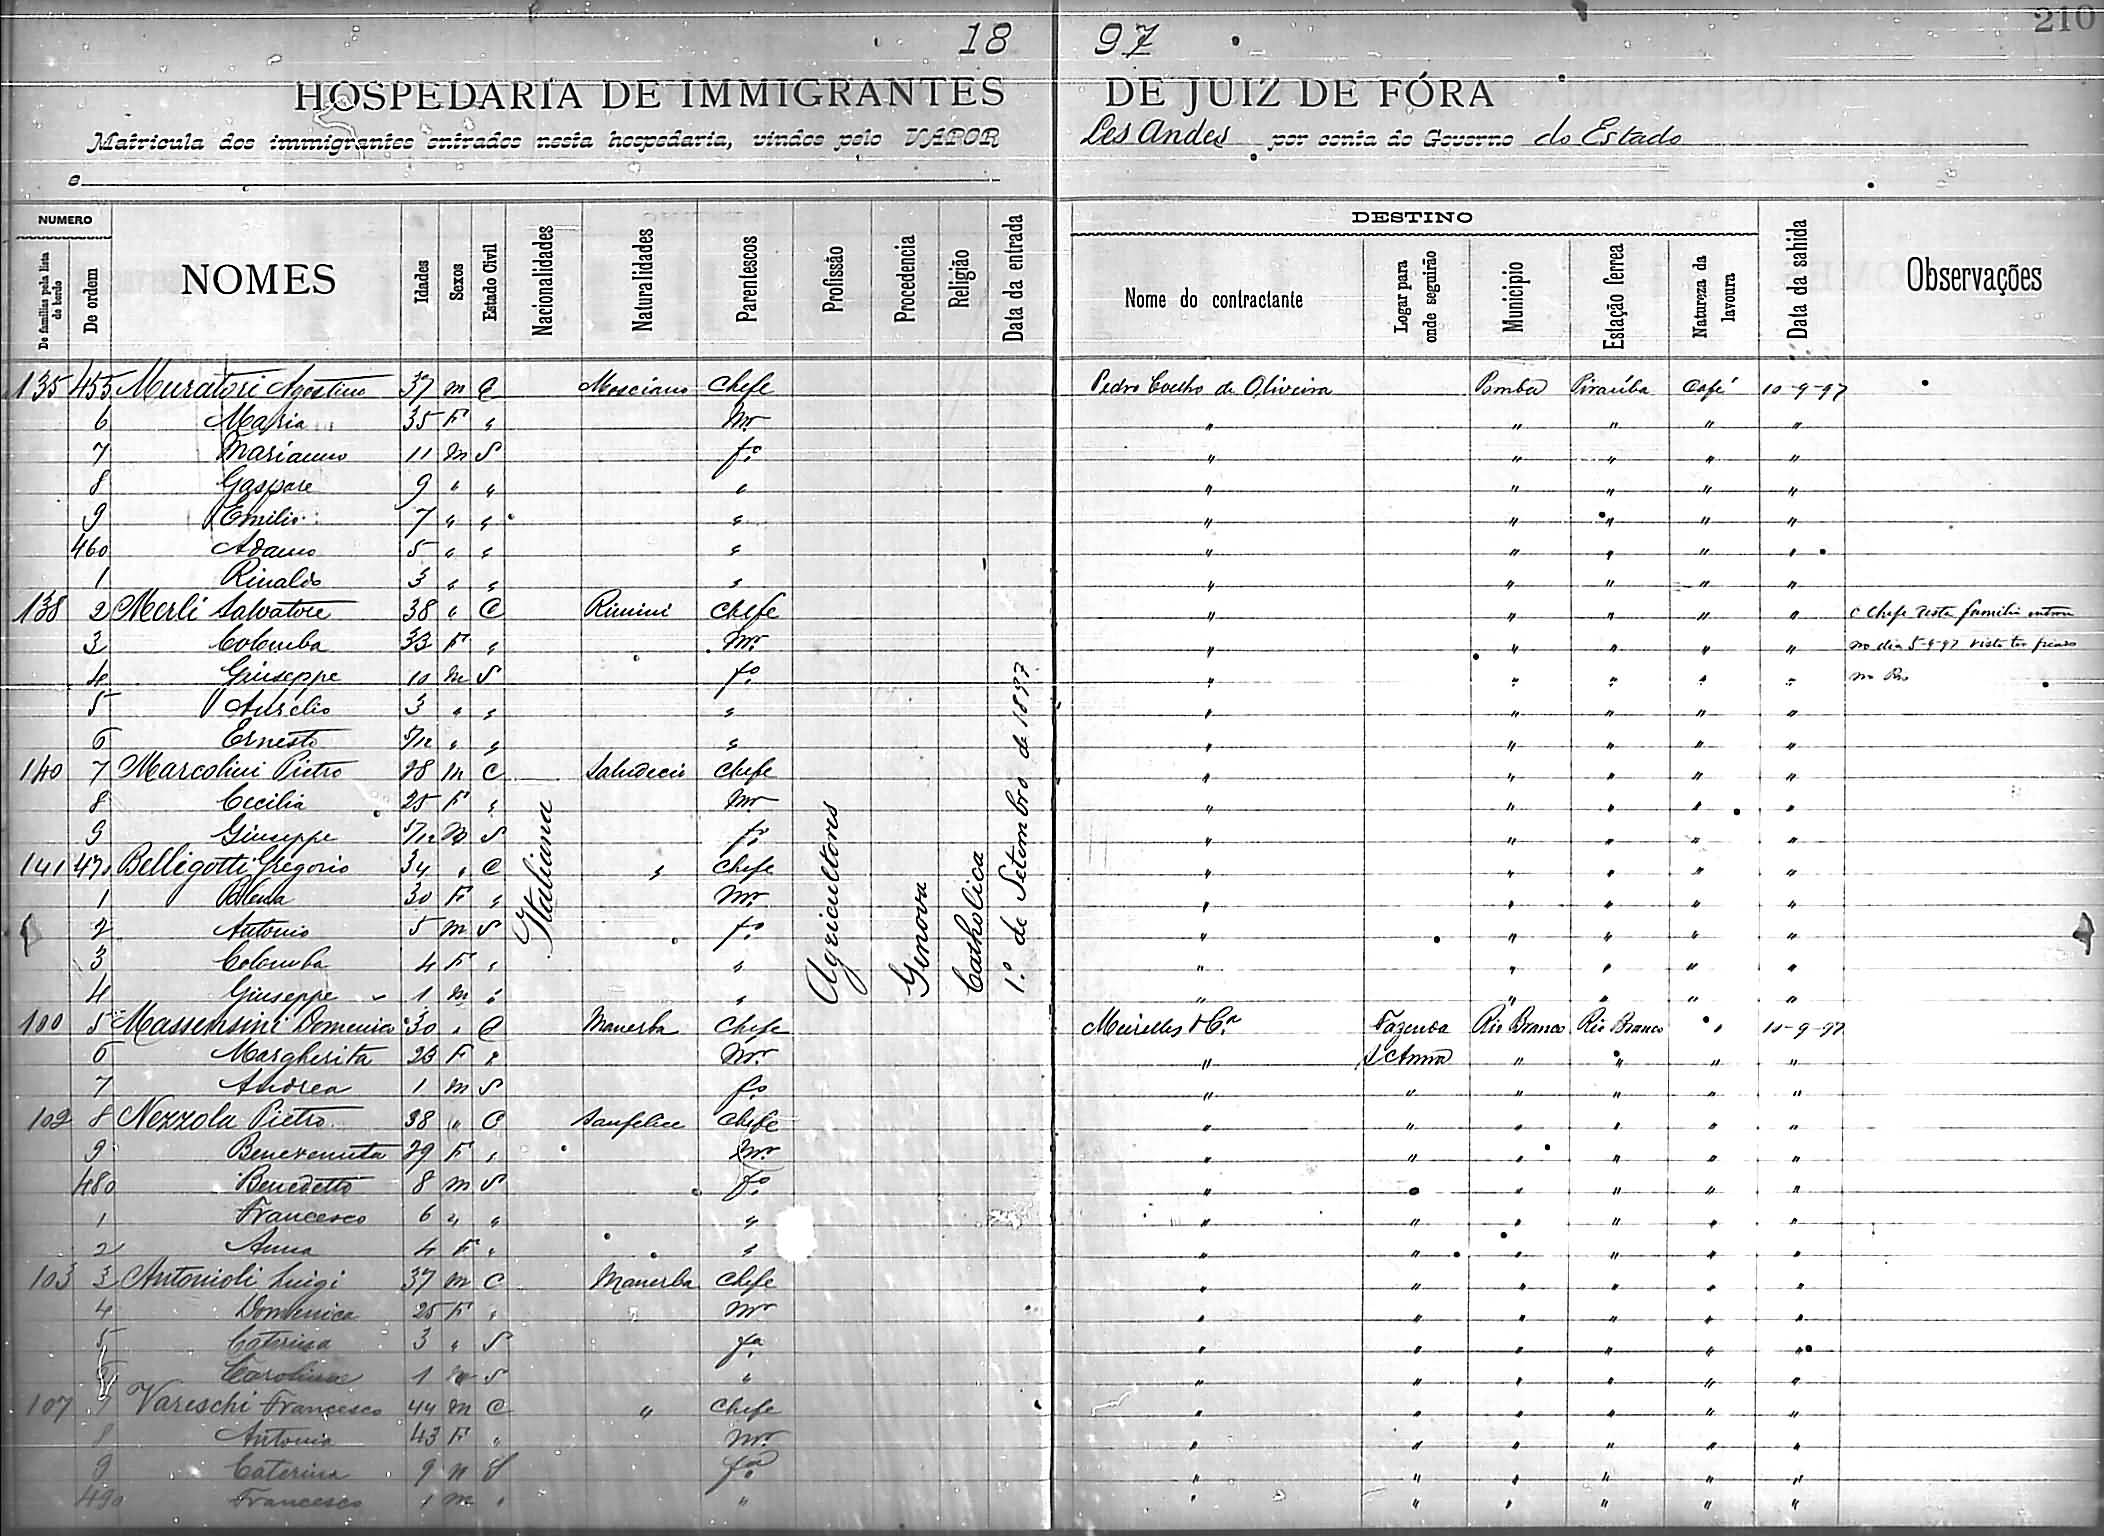 210
18 97
HOSPEDARIA DE IMMIGRANTES DE JUIZ DE FÓRA
Matricula dos immigrantes entrados nesta hospedaria, vindos pelo VAPOR Les Andes por conta do Governo do Estado
e
NUMERO DESTINO
De familias pela lista de bordo De ordem NOMES Idades Sexos Estado Civil Nacionalidades Naturalidades Parentescos Profissão Procedencia Religião Data da entrada Nome do contractante Logar para onde seguirão Municipio Estação ferrea Natureza da lavoura Data da sahida Observações
135 455 Muratori Agostino 37 m C Mosciano Chefe Pedro Coelho de Oliveira Pomba Piraúba Café 10-9-97
6 Maria 35 F " Mr " " " " "
7 Marianno 11 m S fo " " " " "
8 Gaspare 9 " " " " " " " "
9 Emilio 7 " " " " " " " "
460 Adamo 5 " " " " " " " "
1 Rinaldo 3 " " " " " " " "
138 2 Merli Salvatore 38 " C Rimini Chefe " " " " " o Chefe desta familia
3 Colomba 33 F " Mr " " " " " no dia 5-9-97 visto ter ficado
4 Giuseppe 10 m S fo " " " " " no Rio
5 Aurelio 3 " " " " " " " "
6 Ernesto 5/12 " " " " " " " "
140 7 Marcolini Pietro 28 m C Saludecio Chefe " " " " "
8 Cecilia 25 F " Mr " " " " "
9 Giuseppe 5/12 M S fo " " " " "
141 470 Belligotti Gregorio 34 " C " Chefe " " " " "
1 30 F " Mr " " " " "
2 Antonio 5 m S fo " " " " "
3 Colomba 4 F " " " " " " "
4 Giuseppe 1 m " " " " " " "
Italiana Agricultores Genova Catholica 1º de Setembro de 1897
100 5 Massensini Domenico 30 " C Manerba Chefe Meirelles & Cª Fazenda Rio Branco Rio Branco " 10-9-97
6 Margherita 23 F " Mr " S. Anna " " " "
7 Andrea 1 m S fo " " " " " "
102 8 Nezzola Pietro 38 " C Sanfelice Chefe " " " " " "
9 Benevenuta 29 F " Mr " " " " " "
480 Benedetto 8 m S fo " " " " "
1 Francesco 6 " " " " " " " " "
2 Anna 4 F " " " " " " " "
103 3 Antonioli Luigi 37 m C Manerba Chefe " " " " " "
4 Domenica 25 F " " Mr " " " " " "
5 Caterina 3 " S fa " " " " " "
6 Carolina 1 m S " " " " " " "
107 7 Vareschi Francesco 44 m C " Chefe " " " " " "
8 Antonia 43 F " Mr " " " " " "
9 Caterina 9 S fa " " " " " "
490 Francesco 1 m " " " " " " " "